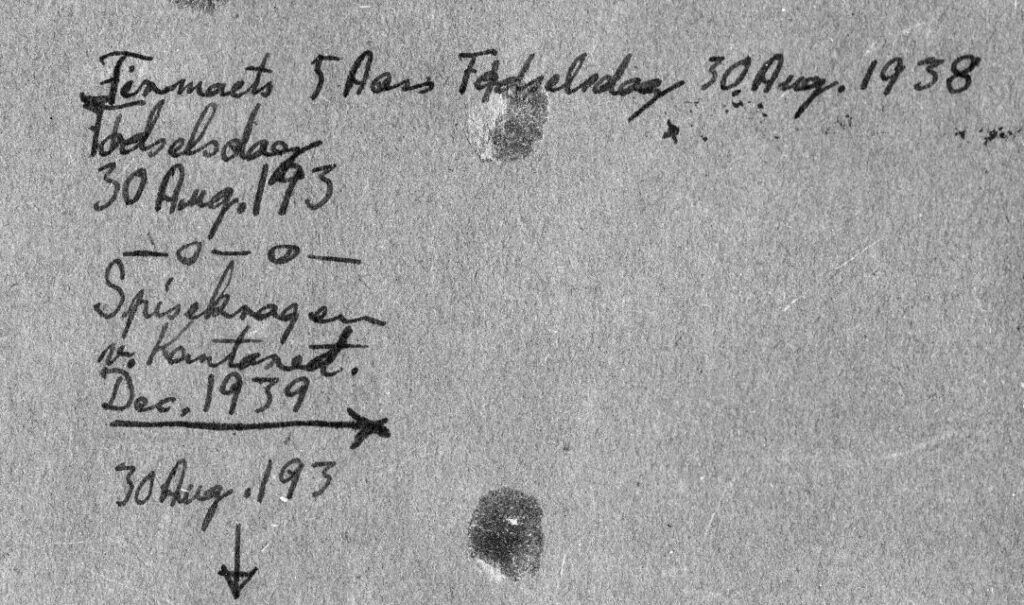 Finmaets 5 Aars Fødselsdag 30 Aug. 1938
Fødselsdag
30 Aug. 193
— o — o —
Spisekrogen
v. Kantonent.
Dec. 1939
30 Aug. 193